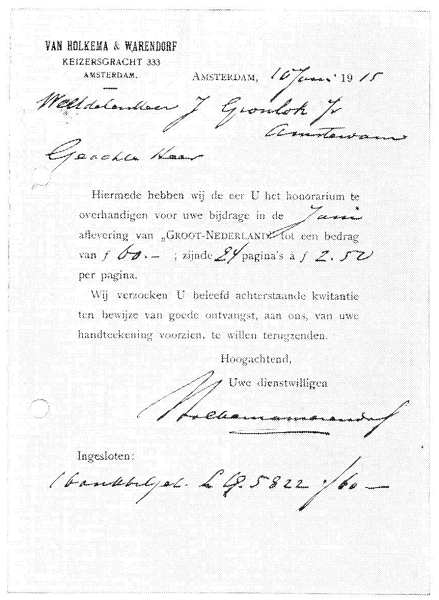 VAN HOLKEMA & WARENDORF
KEIZERSGRACHT 333
AMSTERDAM.
AMSTERDAM, 10 Juni 1915
J Gronloh Jr
Amsterdam
Geachte Heer
Hiermede hebben wij de eer U het honorarium te
overhandigen voor uwe bijdrage in de Juni
aflevering van „GROOT-NEDERLAND" tot een bedrag
van ƒ 60.— ; zijnde 24 pagina's à ƒ 2.50
per pagina.
Wij verzoeken U beleefd achterstaande kwitantie
ten bewijze van goede ontvangst, aan ons, van uwe
handteekening voorzien, te willen terugzenden.
Hoogachtend,
Uwe dienstwilligen
Holkema Warendorf
Ingesloten:
1 bankbiljet. 5822 ƒ60—